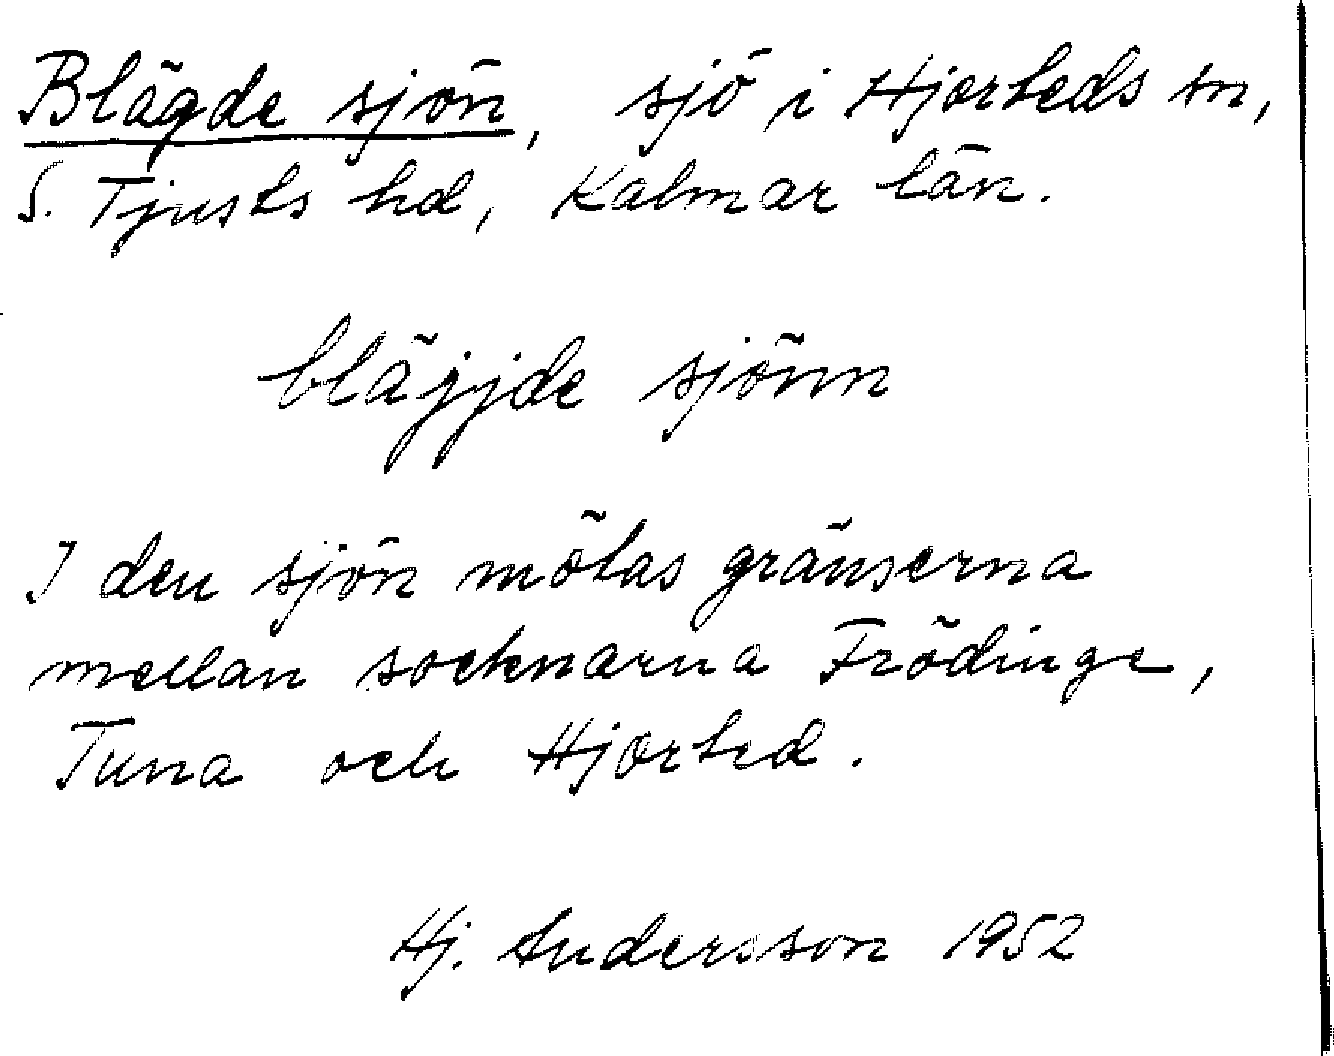 Blägde sjön, sjö i Hjorteds sn,
S. Tjusts hd, Kalmar län.
bläjjde sjönn
I den sjön mötas gränserna
mellan socknarna Frödinge,
Tuna och Hjorted.
Hj. Andersson 1952